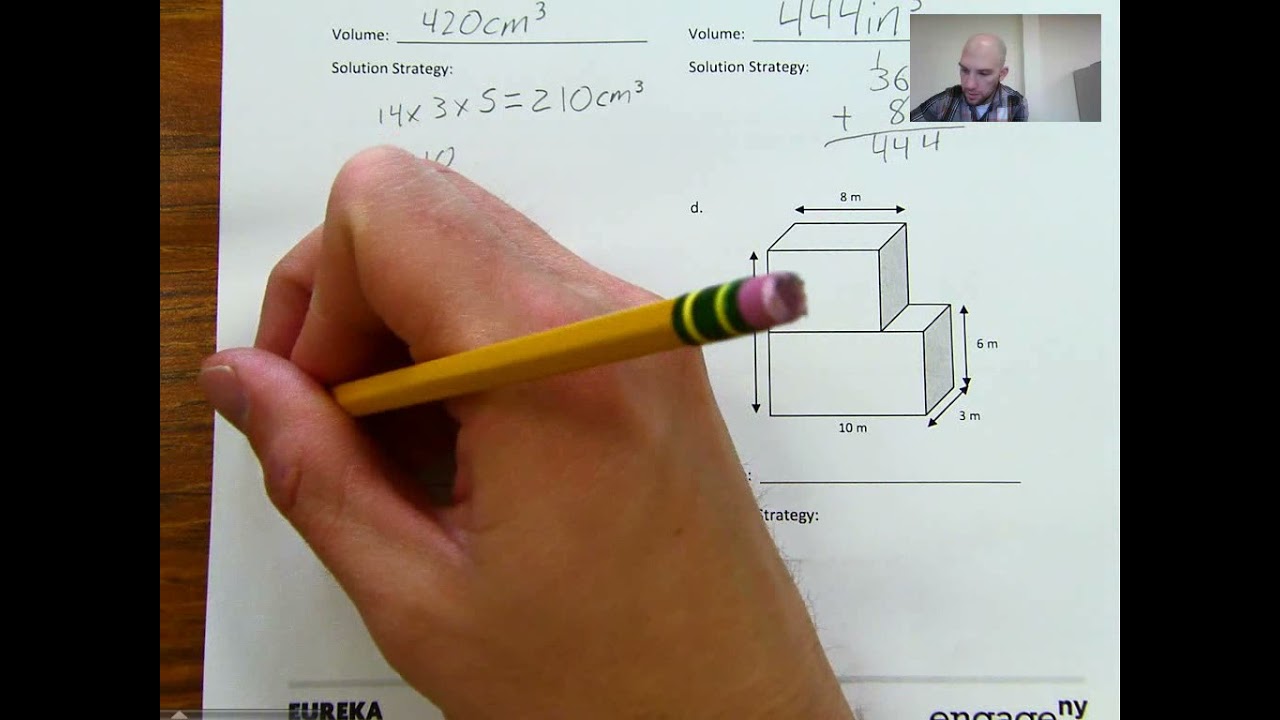 Volume: 420cm³
Solution Strategy:
14 x 3 x 5 = 210cm³
Volume: 444in³
Solution Strategy:
+ 8
444
d.
8 m
6 m
3 m
10 m
Strategy:
EUREKA
engageny